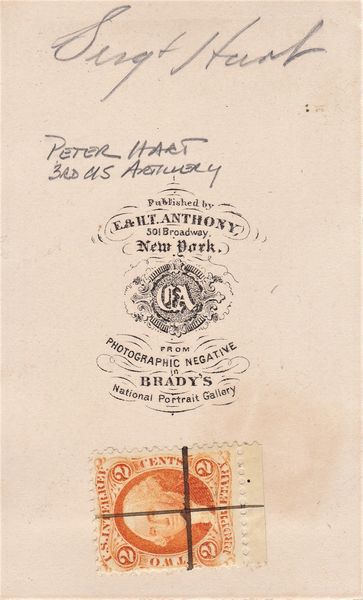 Sergt Hart
PETER HART
3RD US ARTILLERY
Published by
E. & H.T. ANTHONY,
501 Broadway.
New York.
FROM
PHOTOGRAPHIC NEGATIVE
in
BRADY'S
National Portrait Gallery
U.S. INTER. REV.
2 CENTS 2
2 TWO 2